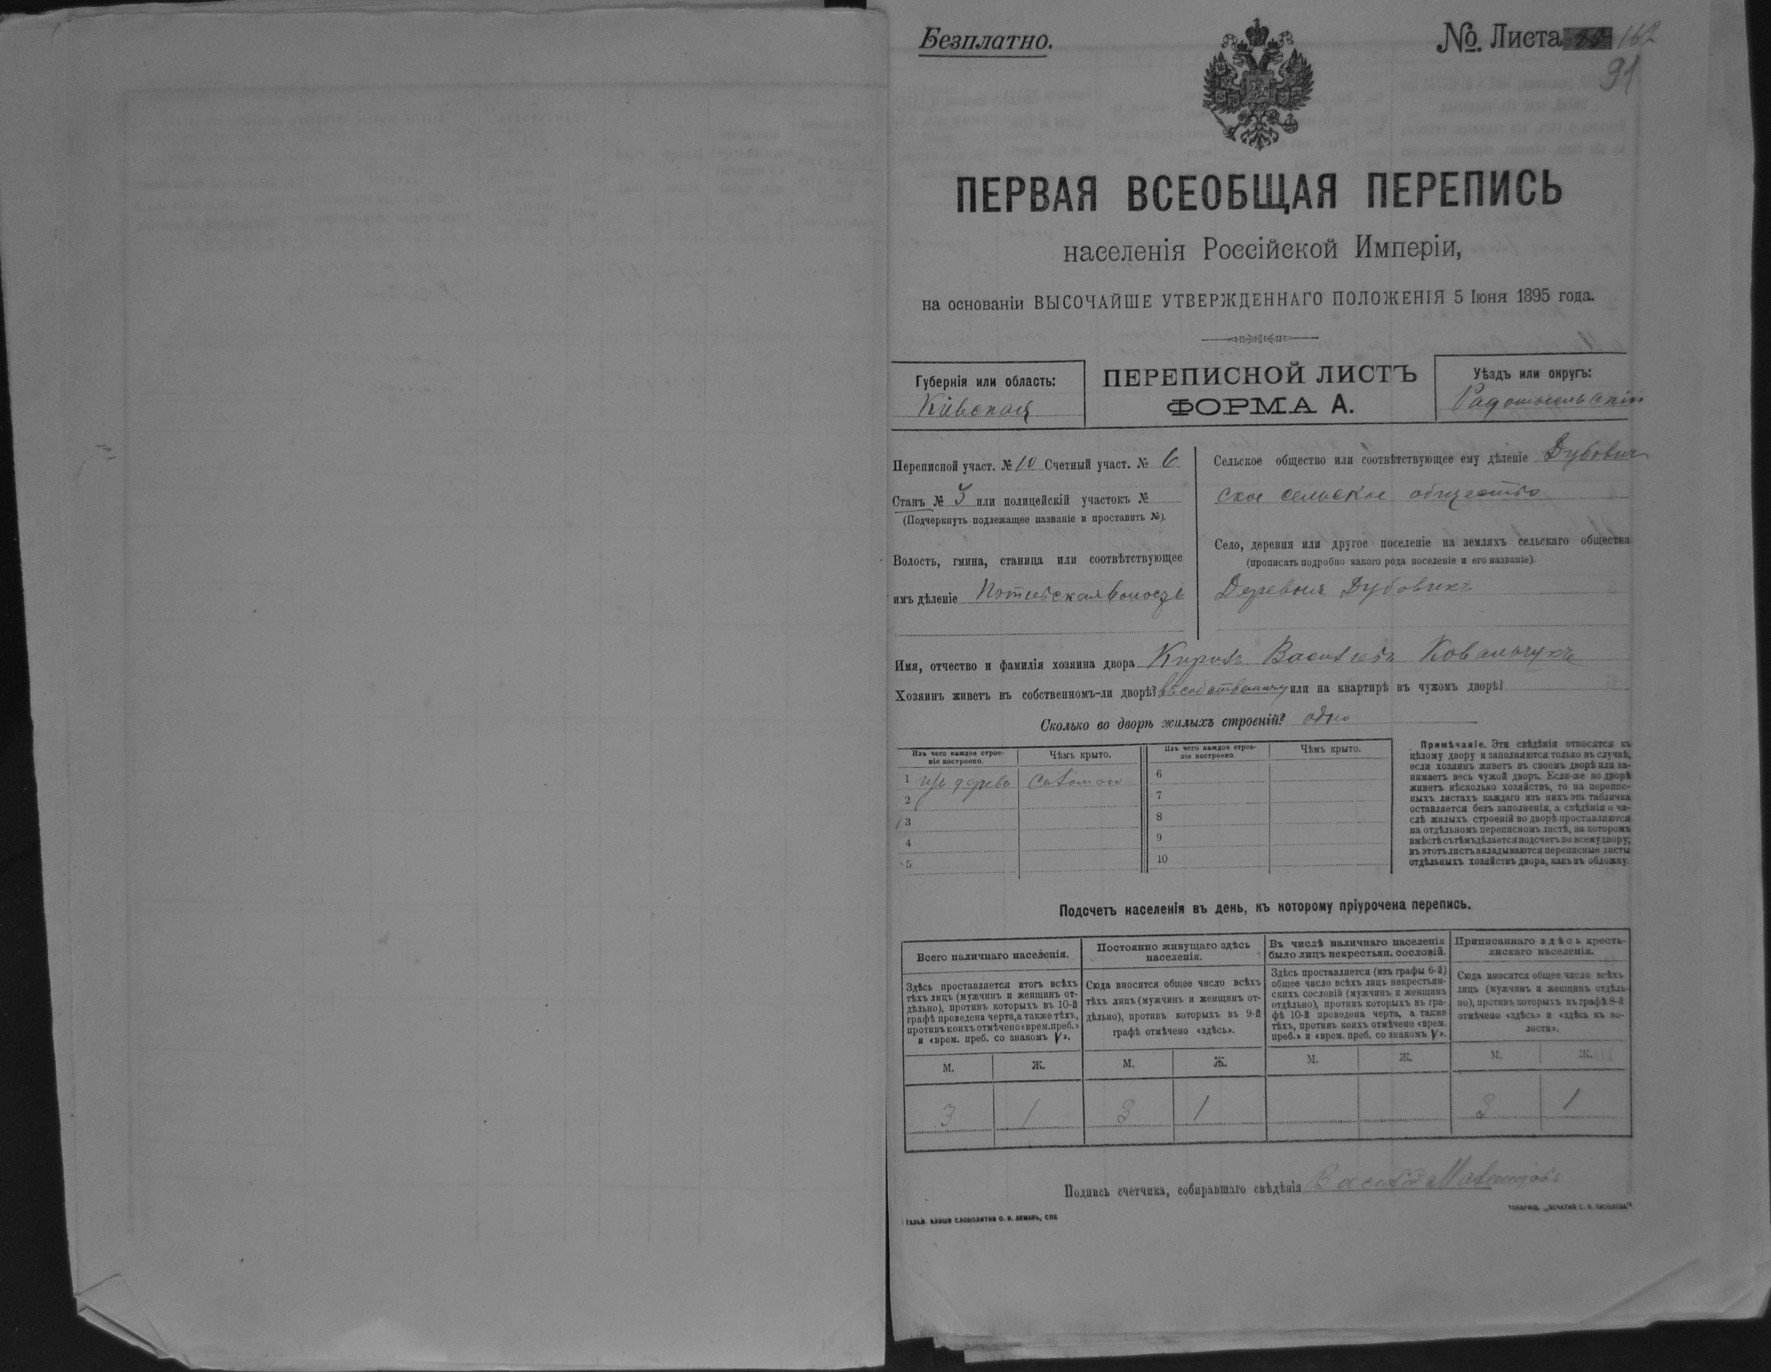 Безплатно.
№ Листа 162
91
ПЕРВАЯ ВСЕОБЩАЯ ПЕРЕПИСЬ
населенія Россійской Имперіи,
на основаніи ВЫСОЧАЙШЕ УТВЕРЖДЕННАГО ПОЛОЖЕНІЯ 5 Іюня 1895 года.
Губернія или область:
Кіевская
ПЕРЕПИСНОЙ ЛИСТЪ
ФОРМА А.
Уѣздъ или округъ:
Радомысльскій
Переписной участ. № 10 Счетный участ. № 6
Станъ № 3 или полицейскій участокъ №
(Подчеркнуть подлежащее названіе и проставить №).
Волость, гмина, станица или соотвѣтствующее
имъ дѣленіе Потіевская волость
Сельское общество или соотвѣтствующее ему дѣленіе Дубович
ское сельское общество
Село, деревня или другое поселеніе на земляхъ сельскаго общества
(прописать подробно какого рода поселеніе и его названіе).
Деревня Дубовикъ
Имя, отчество и фамилія хозяина двора Кирилъ Васильевъ Ковальчукъ
Хозяинъ живетъ въ собственномъ-ли дворѣ? въ собственному или на квартирѣ въ чужомъ дворѣ?
Сколько во дворѣ жилыхъ строеній? одно
Изъ чего каждое строе-
ніе построено.
Чѣмъ крыто.
Изъ чего каждое строе-
ніе построено.
Чѣмъ крыто.
1 изъ дерева соломою
2
3
4
5
6
7
8
9
10
Примѣчаніе. Эти свѣдѣнія относятся къ
цѣлому двору и заполняются только въ случаѣ,
если хозяинъ живетъ въ своемъ дворѣ или за-
нимаетъ весь чужой дворъ. Если-же во дворѣ
живетъ нѣсколько хозяйствъ, то на перепис-
ныхъ листахъ каждаго изъ нихъ эта табличка
оставляется безъ заполненія, а свѣдѣнія о чи-
слѣ жилыхъ строеній во дворѣ проставляются
на отдѣльномъ переписномъ листѣ, на которомъ
вмѣстѣ съ тѣмъ дѣлается подсчетъ по всему двору;
въ этотъ листъ вкладываются переписные листы
отдѣльныхъ хозяйствъ двора, какъ въ обложку.
Подсчетъ населенія въ день, къ которому пріурочена перепись.
Всего наличнаго населенія.
Здѣсь проставляется итогъ всѣхъ
тѣхъ лицъ (мужчинъ и женщинъ от-
дѣльно), противъ которыхъ въ 10-й
графѣ проведена черта, а также тѣхъ,
противъ коихъ отмѣчено «врем. преб.»
и «врем. преб. со знакомъ V».
Постоянно живущаго здѣсь
населенія.
Сюда вносится общее число всѣхъ
тѣхъ лицъ (мужчинъ и женщинъ от-
дѣльно), противъ которыхъ въ 9-й
графѣ отмѣчено «здѣсь».
Въ числѣ наличнаго населенія
было лицъ некрестьян. сословій.
Здѣсь проставляется (изъ графы 6-й)
общее число всѣхъ лицъ некрестьян-
скихъ сословій (мужчинъ и женщинъ
отдѣльно), противъ которыхъ въ гра-
фѣ 10-й проведена черта, а также
тѣхъ, противъ коихъ отмѣчено «врем.
преб.» и «врем. преб. со знакомъ V».
Приписаннаго здѣсь кресть-
янскаго населенія.
Сюда вносится общее число всѣхъ
лицъ (мужчинъ и женщинъ отдѣль-
но), противъ которыхъ въ графѣ 8-й
отмѣчено «здѣсь» и «здѣсь въ во-
лости».
М. Ж. М. Ж. М. Ж. М. Ж.
3 1 3 1 3 1
Подпись счетчика, собиравшаго свѣдѣнія
ГАЛЬВ. КЛИШЕ СЛОВОЛИТНИ О. И. ЛЕМАНЪ, СПБ